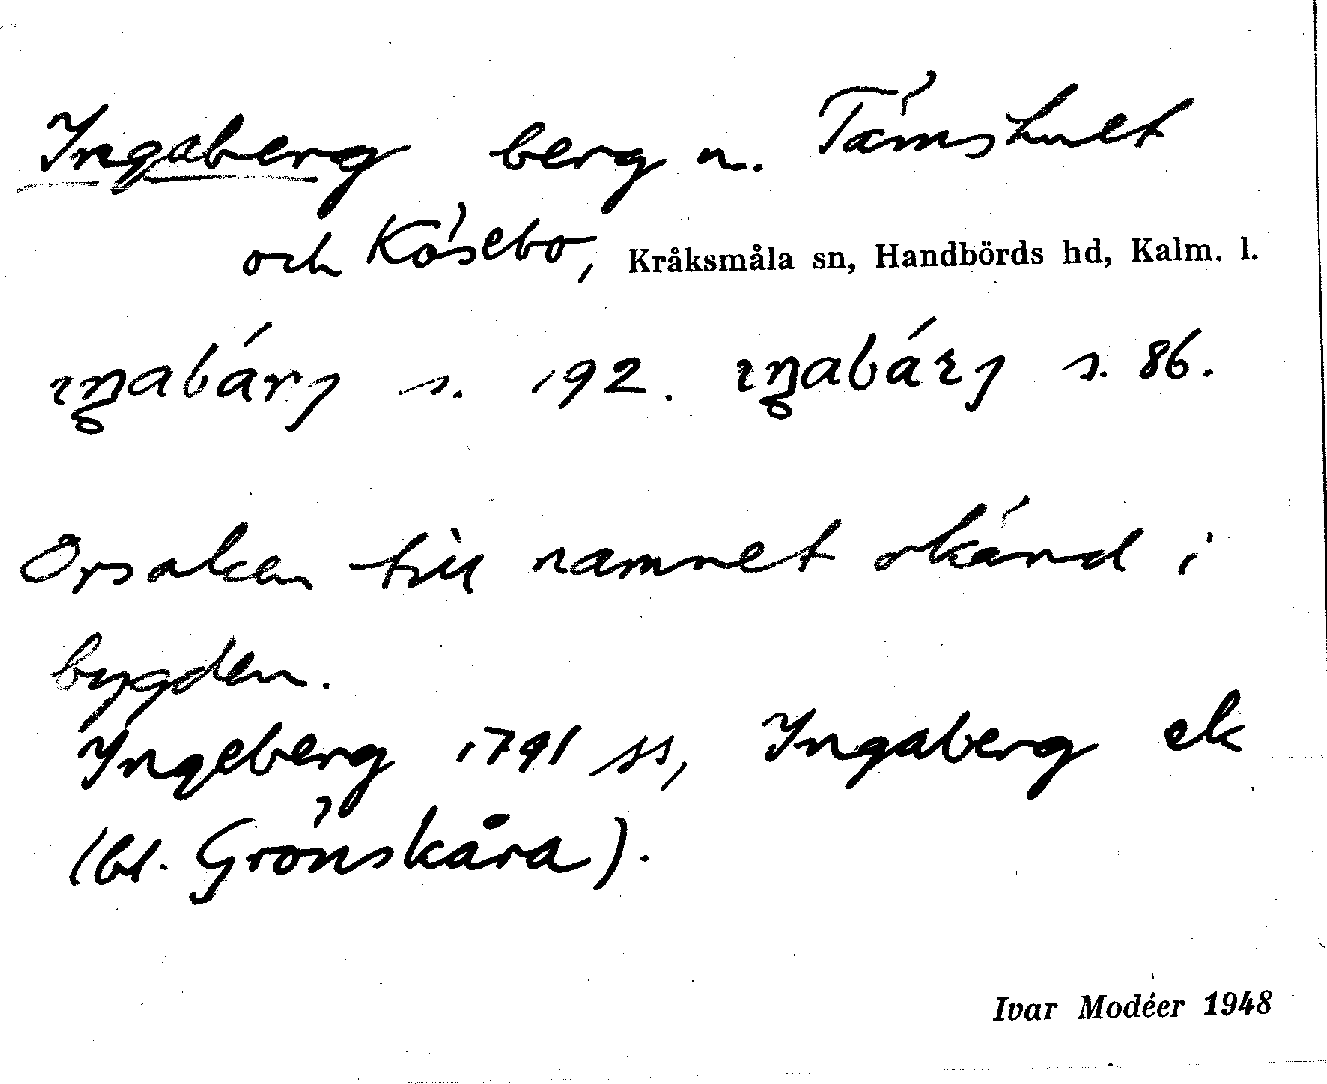 Ingaberg berg n. Tämshult
och Kösebo, Kråksmåla sn, Handbörds hd, Kalm. l.
s. 192. s. 86.
Orsaken till namnet okänd i
bygden.
Ingeberg 1791 ss, Ingaberg ek
(bl. Grönskåra).
Ivar Modéer 1948